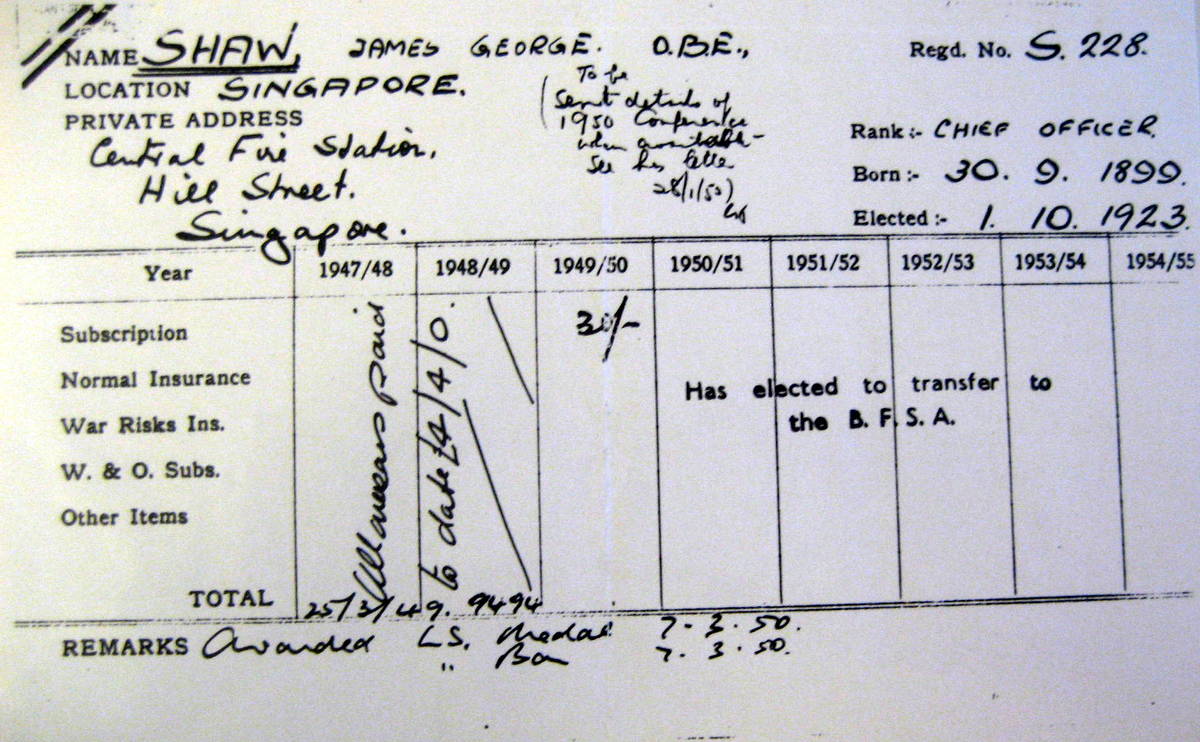 NAME SHAW, JAMES GEORGE. O.B.E., Regd. No. S. 228.
LOCATION SINGAPORE.
(To be
sent details of
1950 Conference
when available –
See his letter
28/1/50)
PRIVATE ADDRESS
Central Fire Station,
Hill Street.
Singapore.
Rank :- CHIEF OFFICER.
Born :- 30. 9. 1899.
Elected :- 1. 10. 1923.
Year 1947/48 1948/49 1949/50 1950/51 1951/52 1952/53 1953/54 1954/55
Subscription 30/-
Normal Insurance
War Risks Ins.
W. & O. Subs.
Other Items
All arrears paid
to date £4/4/0.
Has elected to transfer to
the B. F. S. A.
TOTAL 25/3/49. 9494
REMARKS Awarded LS. Medal 7. 3. 50.
" Bar 7. 3. 50.